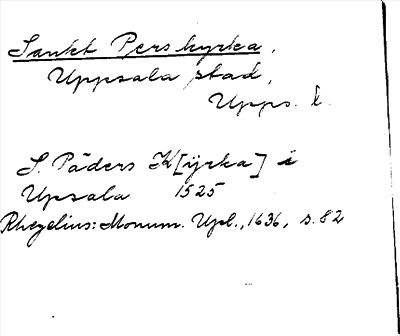 Sankt Pers kyrka,
Uppsala stad,
Upps. l.
S. Päders K[ijrka] i
Upsala 1525
Rhezelius: Monum. Upl., 1636, s. 82